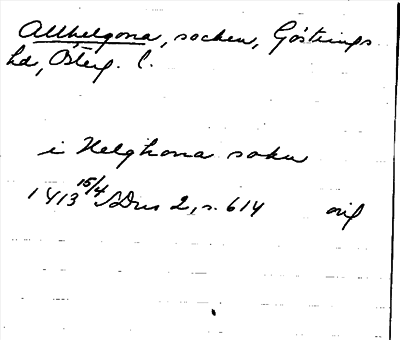 Allhelgona, socken, Göstrings
hd, Österg. l.
i Helghona sokn
1413 15/4 SDns 2, s. 614 orig